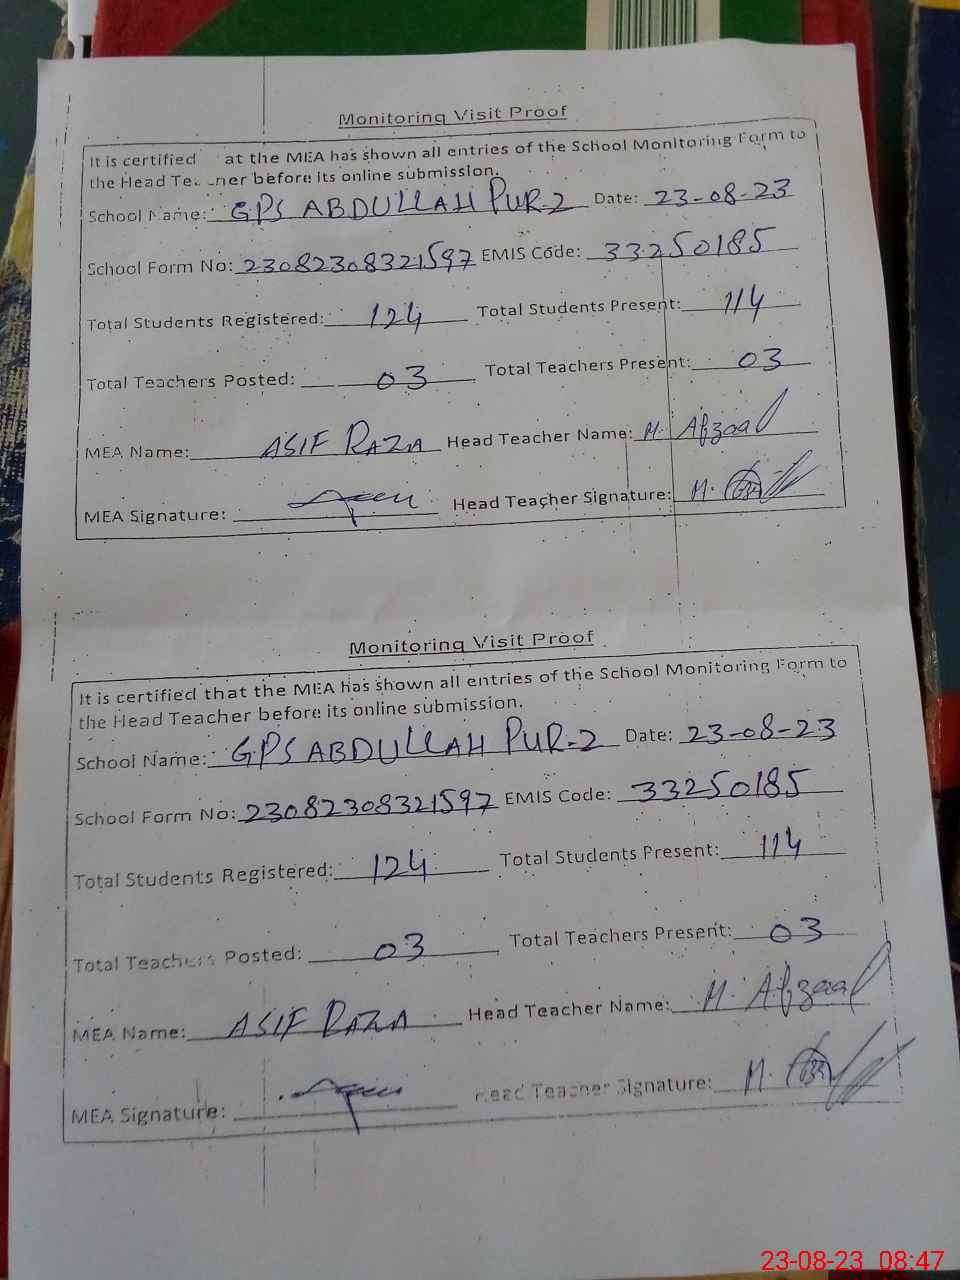 Monitoring Visit Proof
It is certified at the MEA has shown all entries of the School Monitoring Form to
the Head Teacher before its online submission.
School Name: GPS ABDULLAH PUR-2 Date: 23-08-23
School Form No: 23082308321597 EMIS Code: 33250185
Total Students Registered: 124 Total Students Present: 114
Total Teachers Posted: 03 Total Teachers Present: 03
MEA Name: ASIF RAZA Head Teacher Name: M. Afzaal
MEA Signature: Head Teacher Signature: M.
Monitoring Visit Proof
It is certified that the MEA has shown all entries of the School Monitoring Form to
the Head Teacher before its online submission.
School Name: GPS ABDULLAH PUR-2 Date: 23-08-23
School Form No: 23082308321597 EMIS Code: 33250185
Total Students Registered: 124 Total Students Present: 114
Total Teachers Posted: 03 Total Teachers Present: 03
MEA Name: ASIF RAZA Head Teacher Name: M. Afzaal
MEA Signature: Head Teacher Signature: M.
23-08-23 08:47